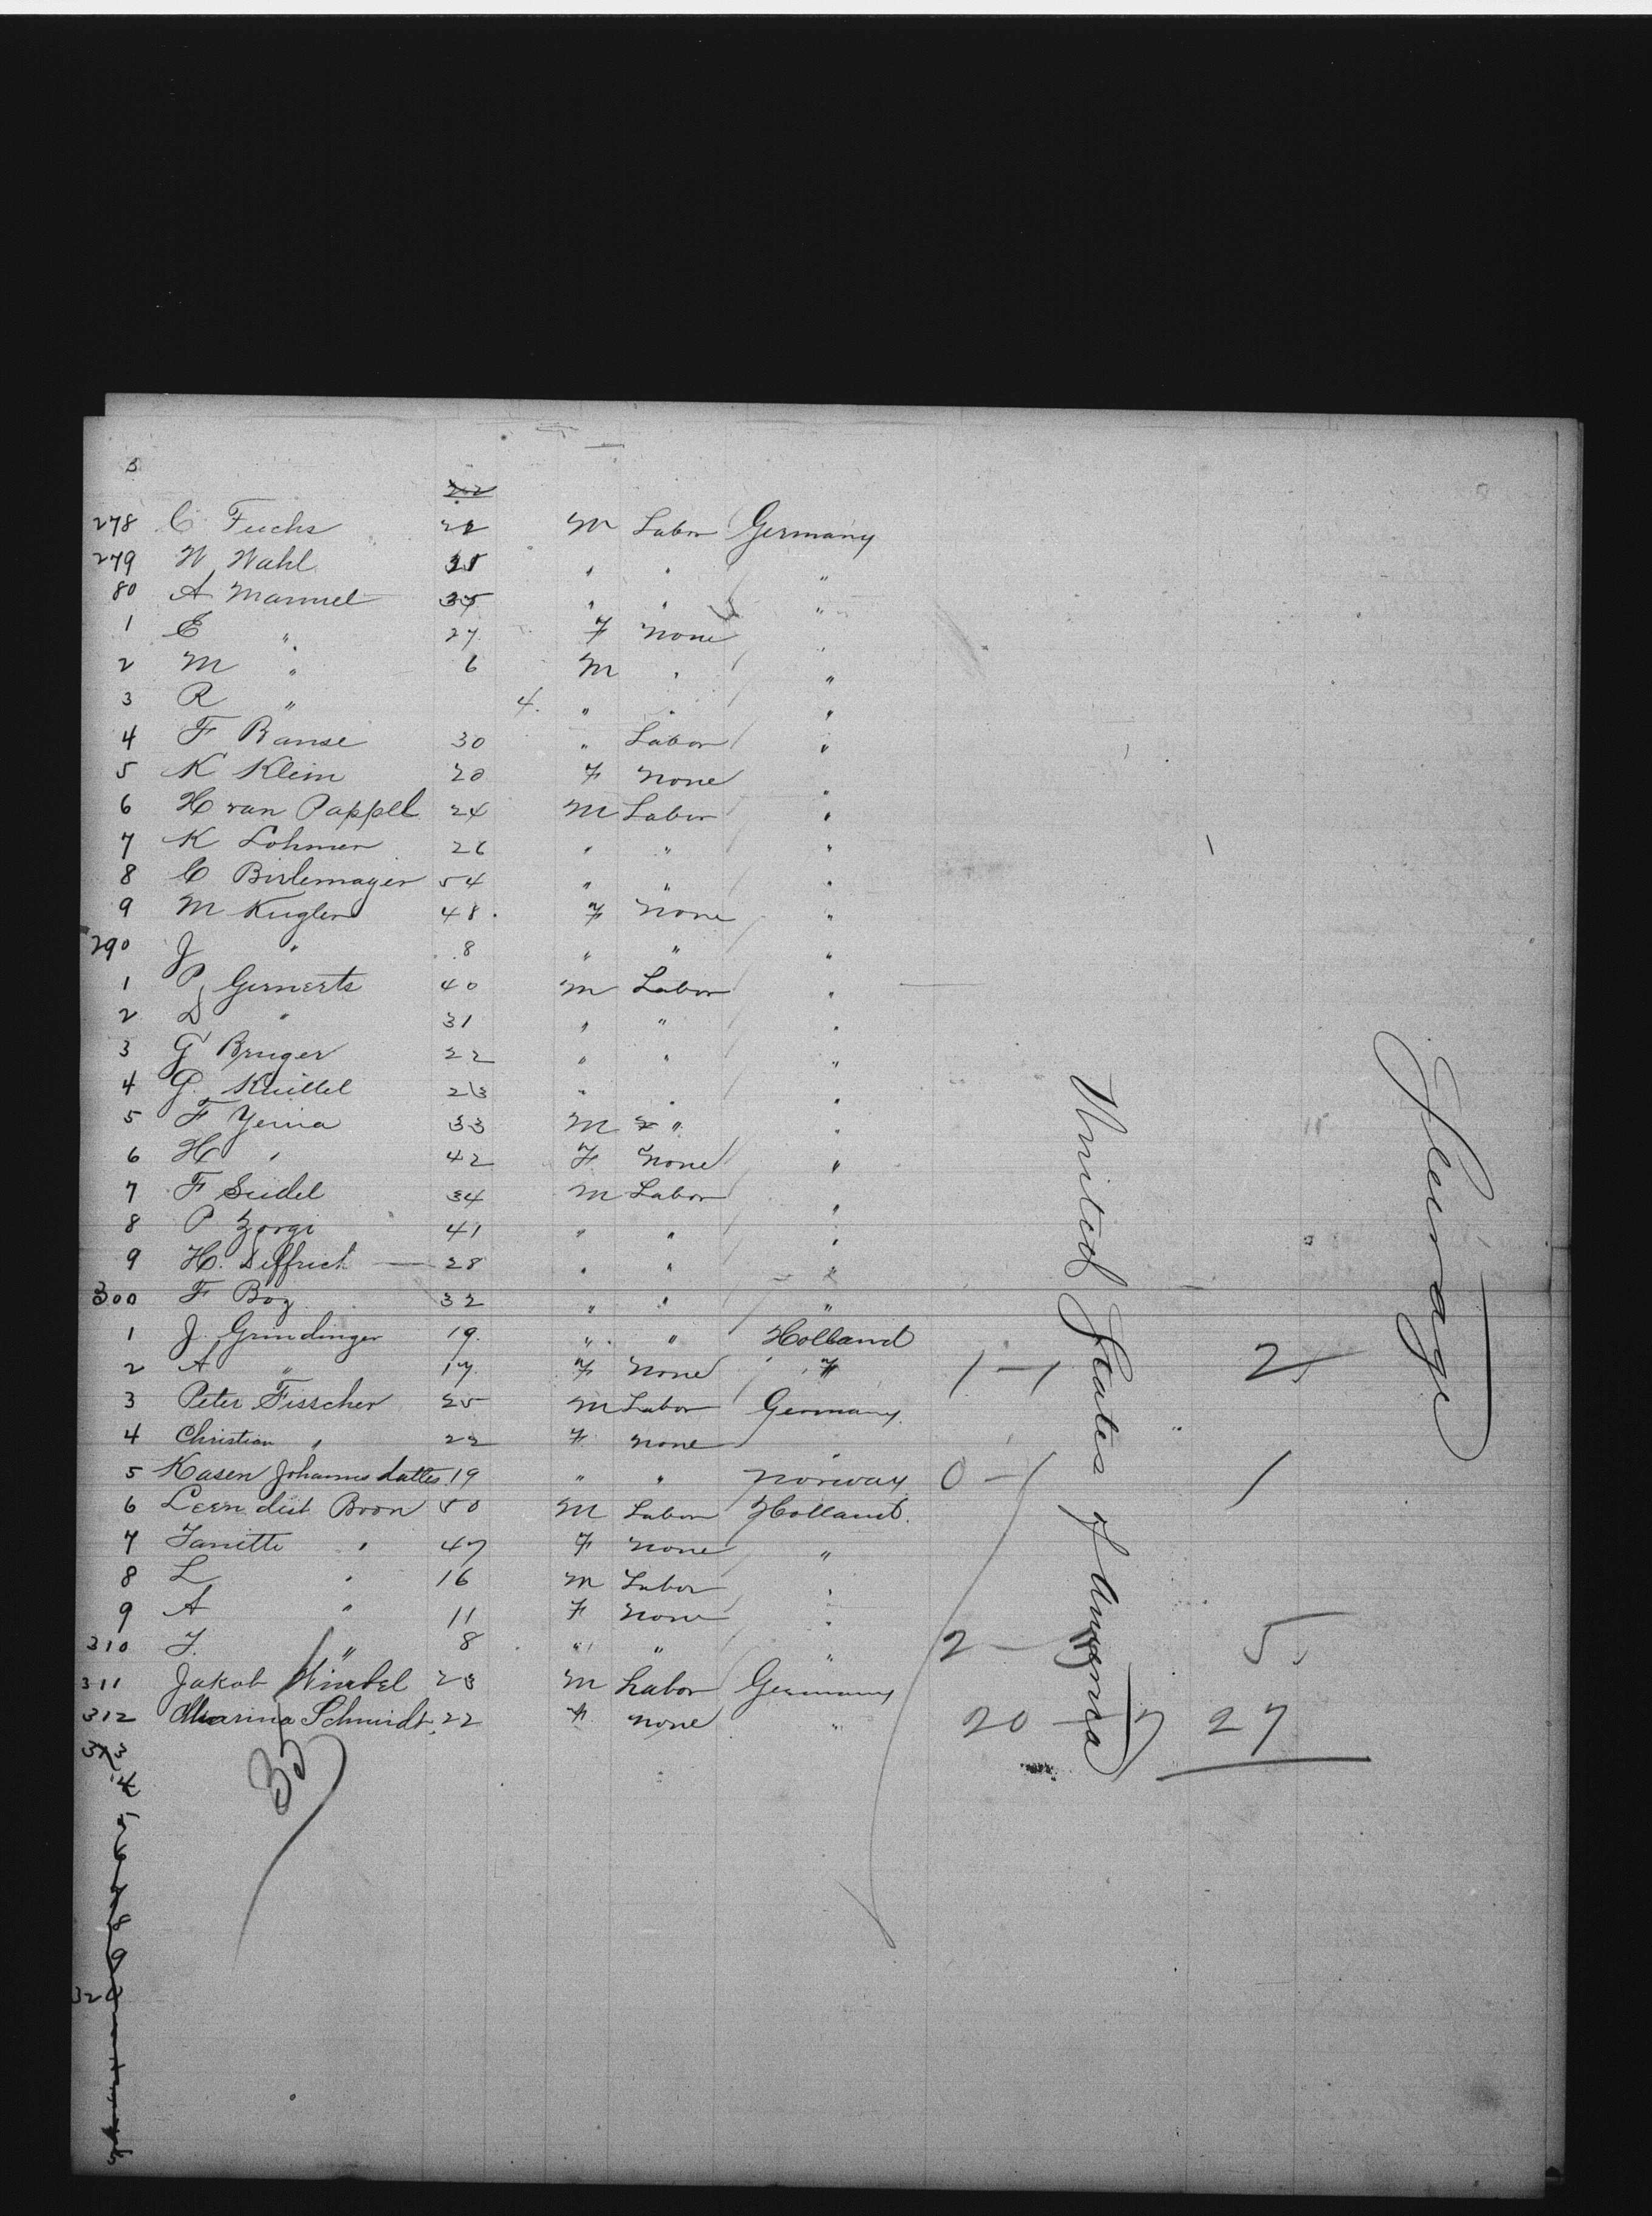 278 C Fuchs 22 M Labor Germany
279 W Wahl " " "
80 A Manuel 35 " " "
1 E " 27 F none "
2 M " 6 M " "
3 R " 4 " " "
4 F Banse 30 " Labor "
5 K Klein 20 F none "
6 H van Pappel 24 M Labor "
7 K Lohmer 26 " " "
8 C Birlemayer 54 " " "
9 M Kugler 48 F none "
290 J " 8 " " "
1 P Gernerts 40 M Labor "
2 D " 31 " " "
3 G Bruger 22 " " "
4 G. Knittel 23 " " "
5 F Yerna 33 M " "
6 H " 42 F none "
7 F Seidel 34 M Labor "
8 P Zorgi 41 " " "
9 H. Deffrich 28 " " "
300 F Boz 32 " " "
1 J. Grindinger 19 " " Holland
2 A " 17 F none " 1 - 1 2
3 Peter Fisscher 25 M Labor Germany
4 Christian " 22 F none "
5 Kasen Johannes 19 " " Norway 0 - 1 1
6 Leen dert Boon 50 M Labor Holland
7 Janette " 47 F none "
8 L " 16 M Labor "
9 A " 11 F none "
310 J. " 8 " " " 2 - 5
311 Jakob Winkel 23 M Labor Germany
312 Marina Schmidt 22 F none " 20 - 7 27
313
4
5
6
7
8
9
320
35
United States of America
Steerage